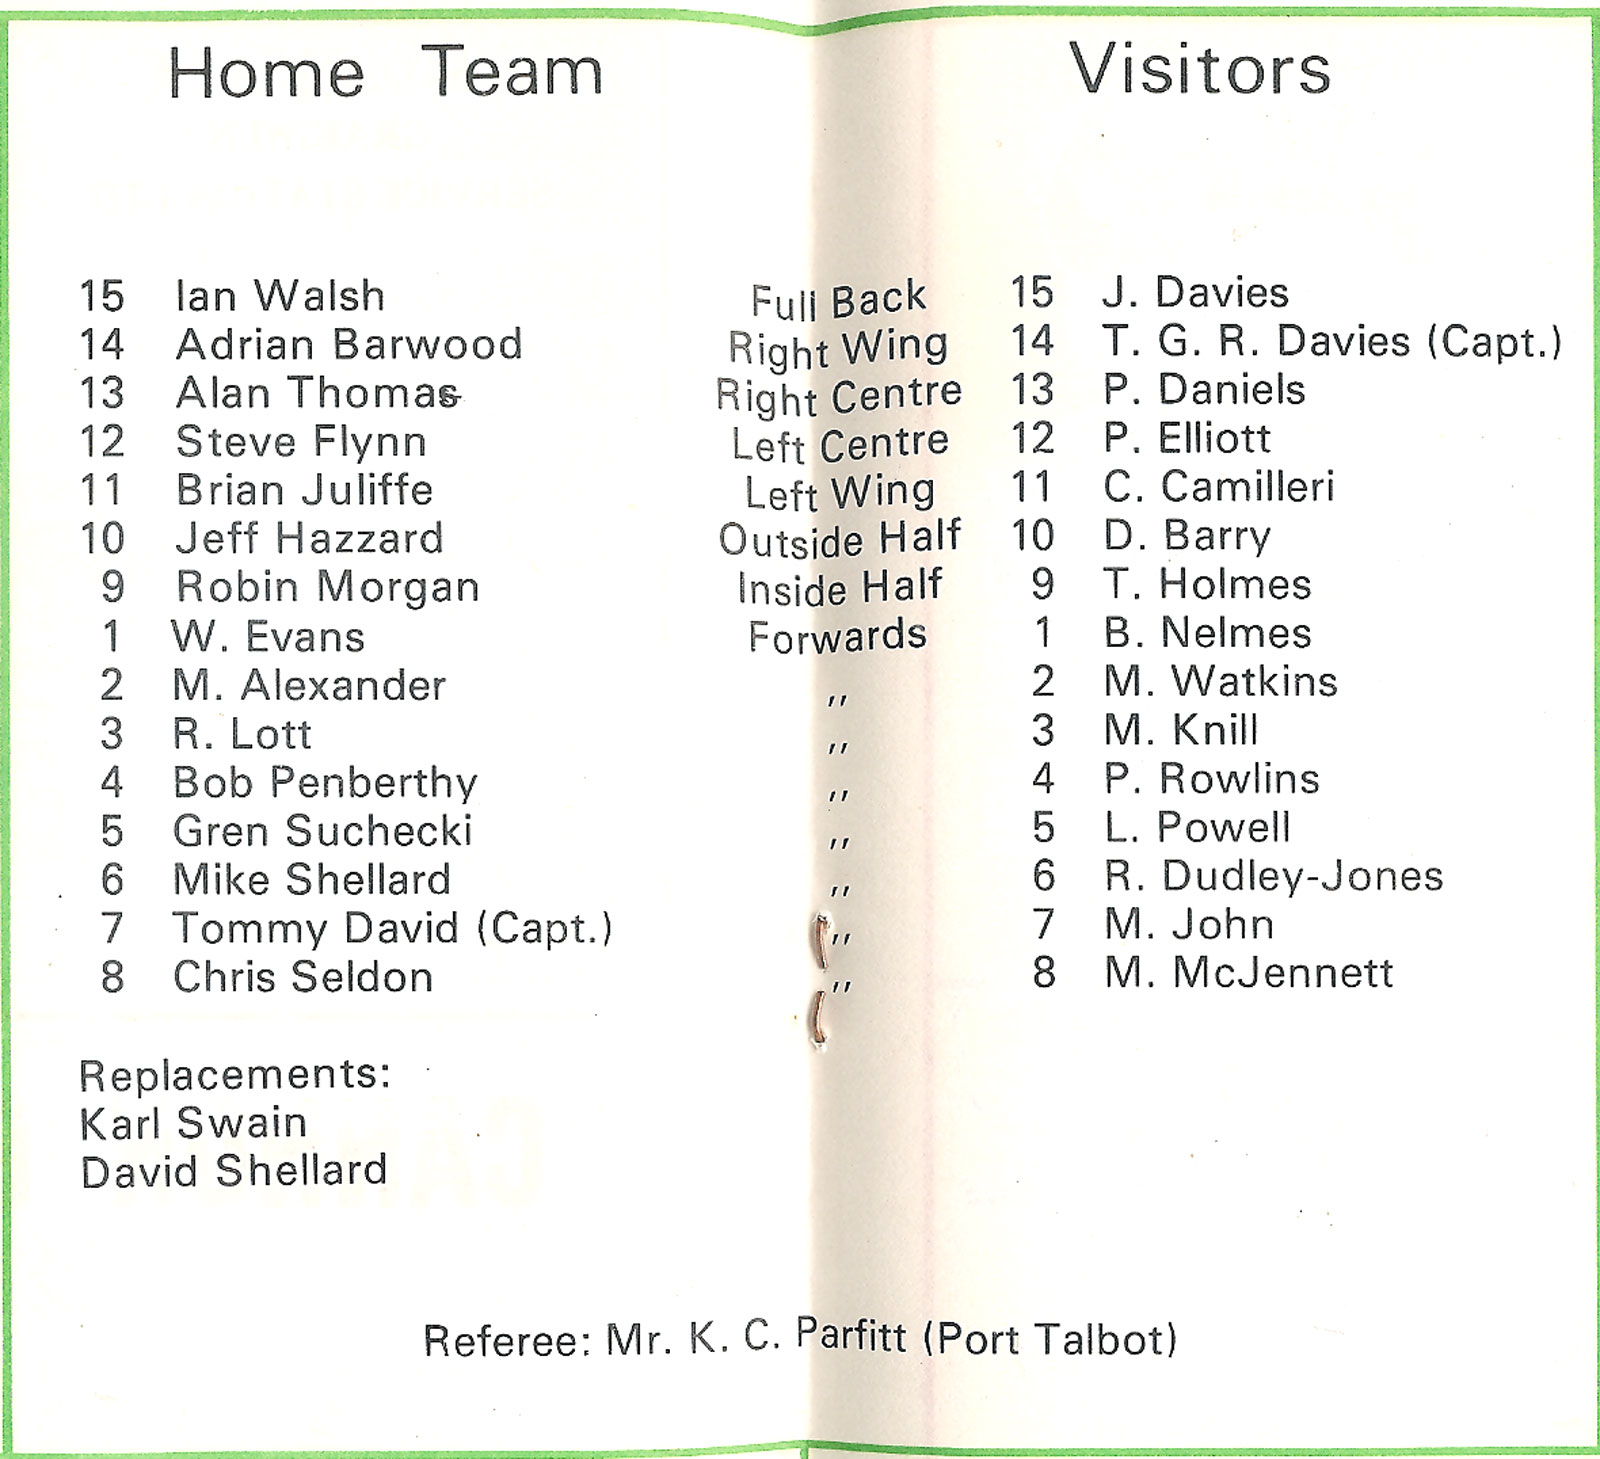 Home Team Visitors
15 Ian Walsh Full Back 15 J. Davies
14 Adrian Barwood Right Wing 14 T. G. R. Davies (Capt.)
13 Alan Thomas Right Centre 13 P. Daniels
12 Steve Flynn Left Centre 12 P. Elliott
11 Brian Juliffe Left Wing 11 C. Camilleri
10 Jeff Hazzard Outside Half 10 D. Barry
9 Robin Morgan Inside Half 9 T. Holmes
1 W. Evans Forwards 1 B. Nelmes
2 M. Alexander ,, 2 M. Watkins
3 R. Lott ,, 3 M. Knill
4 Bob Penberthy ,, 4 P. Rowlins
5 Gren Suchecki ,, 5 L. Powell
6 Mike Shellard ,, 6 R. Dudley-Jones
7 Tommy David (Capt.) ,, 7 M. John
8 Chris Seldon ,, 8 M. McJennett
Replacements:
Karl Swain
David Shellard
Referee: Mr. K. C. Parfitt (Port Talbot)